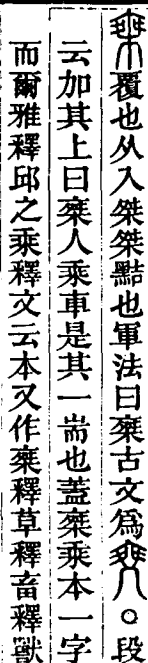 覆也从入桀桀黠也軍法曰椉古文爲○段
云加其上曰椉人乘車是其一耑也蓋椉乘本一字
而爾雅釋邱之乘釋文云本又作椉釋草釋畜釋獸